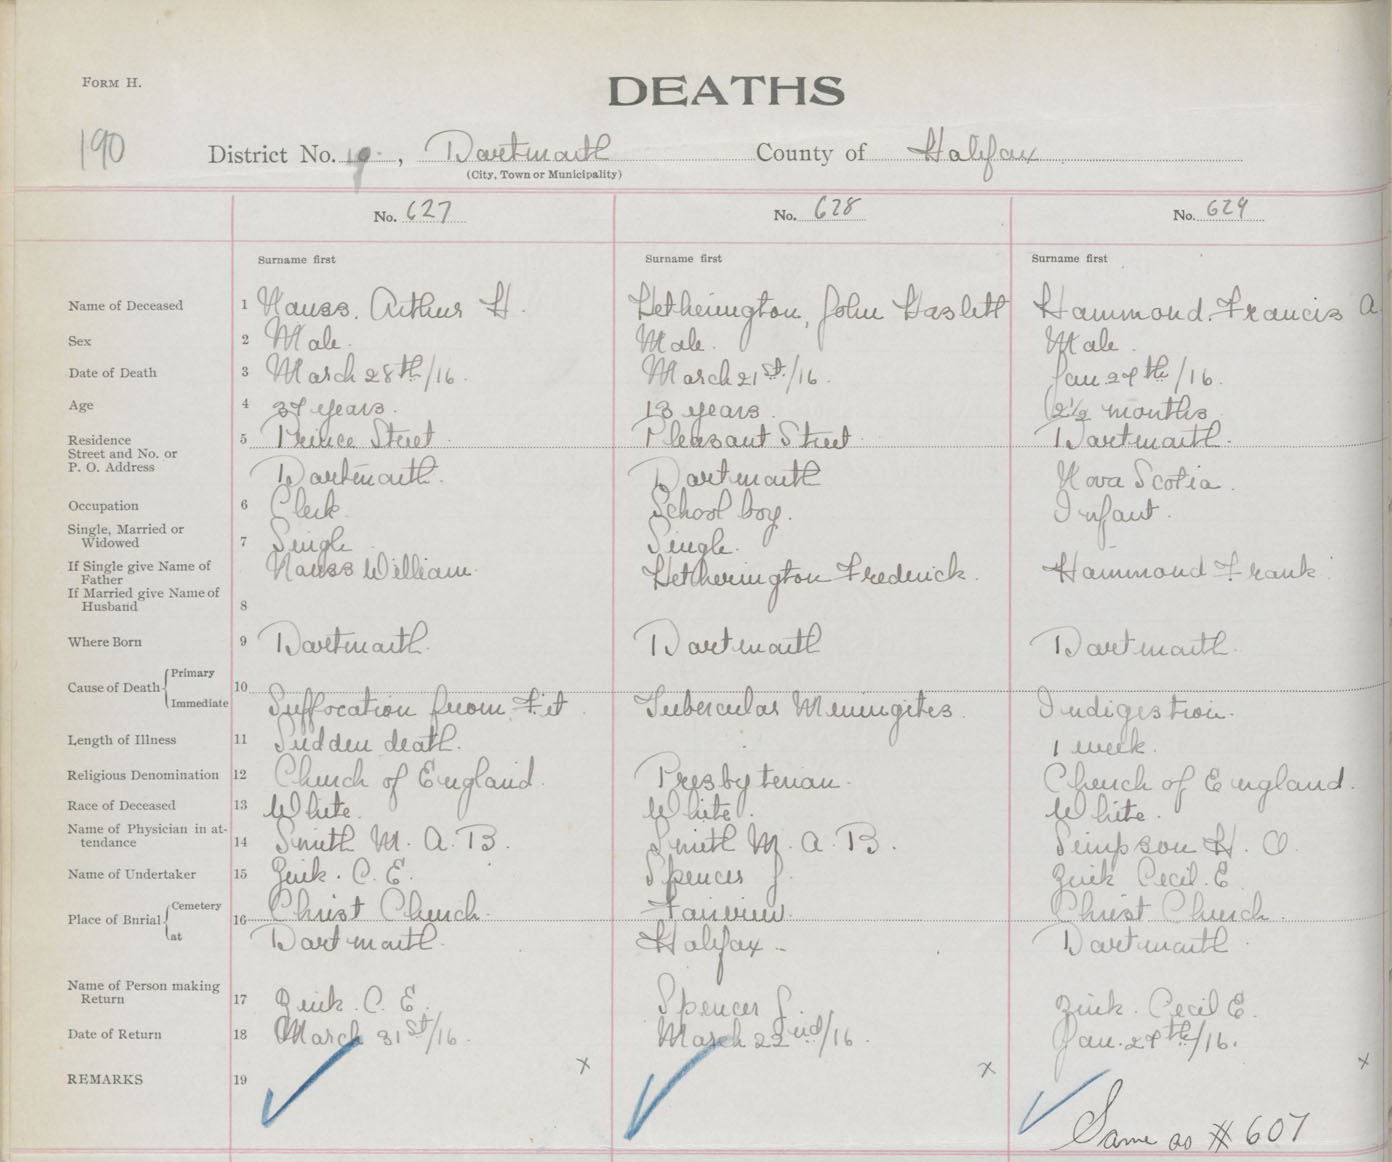 FORM H.
DEATHS
190
District No. 19, Dartmouth County of Halifax
(City, Town or Municipality)
No. 627 No. 628 No. 629
Surname first Surname first Surname first
Name of Deceased 1 Nauss, Arthur H. Hetherington, John Haslett Hammond, Francis A
Sex 2 Male. Male. Male.
Date of Death 3 March 28th/16. March 21st/16. Jan 27th/16.
Age 4 37 years. 13 years. 2½ months
Residence 5 Prince Street Pleasant Street Dartmouth.
Street and No. or
P. O. Address Dartmouth. Dartmouth Nova Scotia.
Occupation 6 Clerk. School boy. Infant.
Single, Married or
Widowed 7 Single Single.
If Single give Name of
Father Nauss William. Hetherington Frederick. Hammond Frank.
If Married give Name of
Husband 8
Where Born 9 Dartmouth. Dartmouth Dartmouth.
Cause of Death Primary 10
Immediate Suffocation from Fit Tubercular Meningites. Indigestion.
Length of Illness 11 Sudden death. 1 week.
Religious Denomination 12 Church of England. Presbyterian. Church of England.
Race of Deceased 13 White. White. White.
Name of Physician in at-
tendance 14 Smith M. A. B. Smith M. A. B. Simpson H. O.
Name of Undertaker 15 Zink. C. E. Spencer J. Zink Cecil. E
Place of Burial Cemetery 16 Christ Church. Fairview. Christ Church.
at Dartmouth. Halifax - Dartmouth.
Name of Person making
Return 17 Zink. C. E. Spencer J. Zink. Cecil E.
Date of Return 18 March 31st/16. March 22nd/16. Jan. 27th/16.
x x x
REMARKS 19
Same as # 607